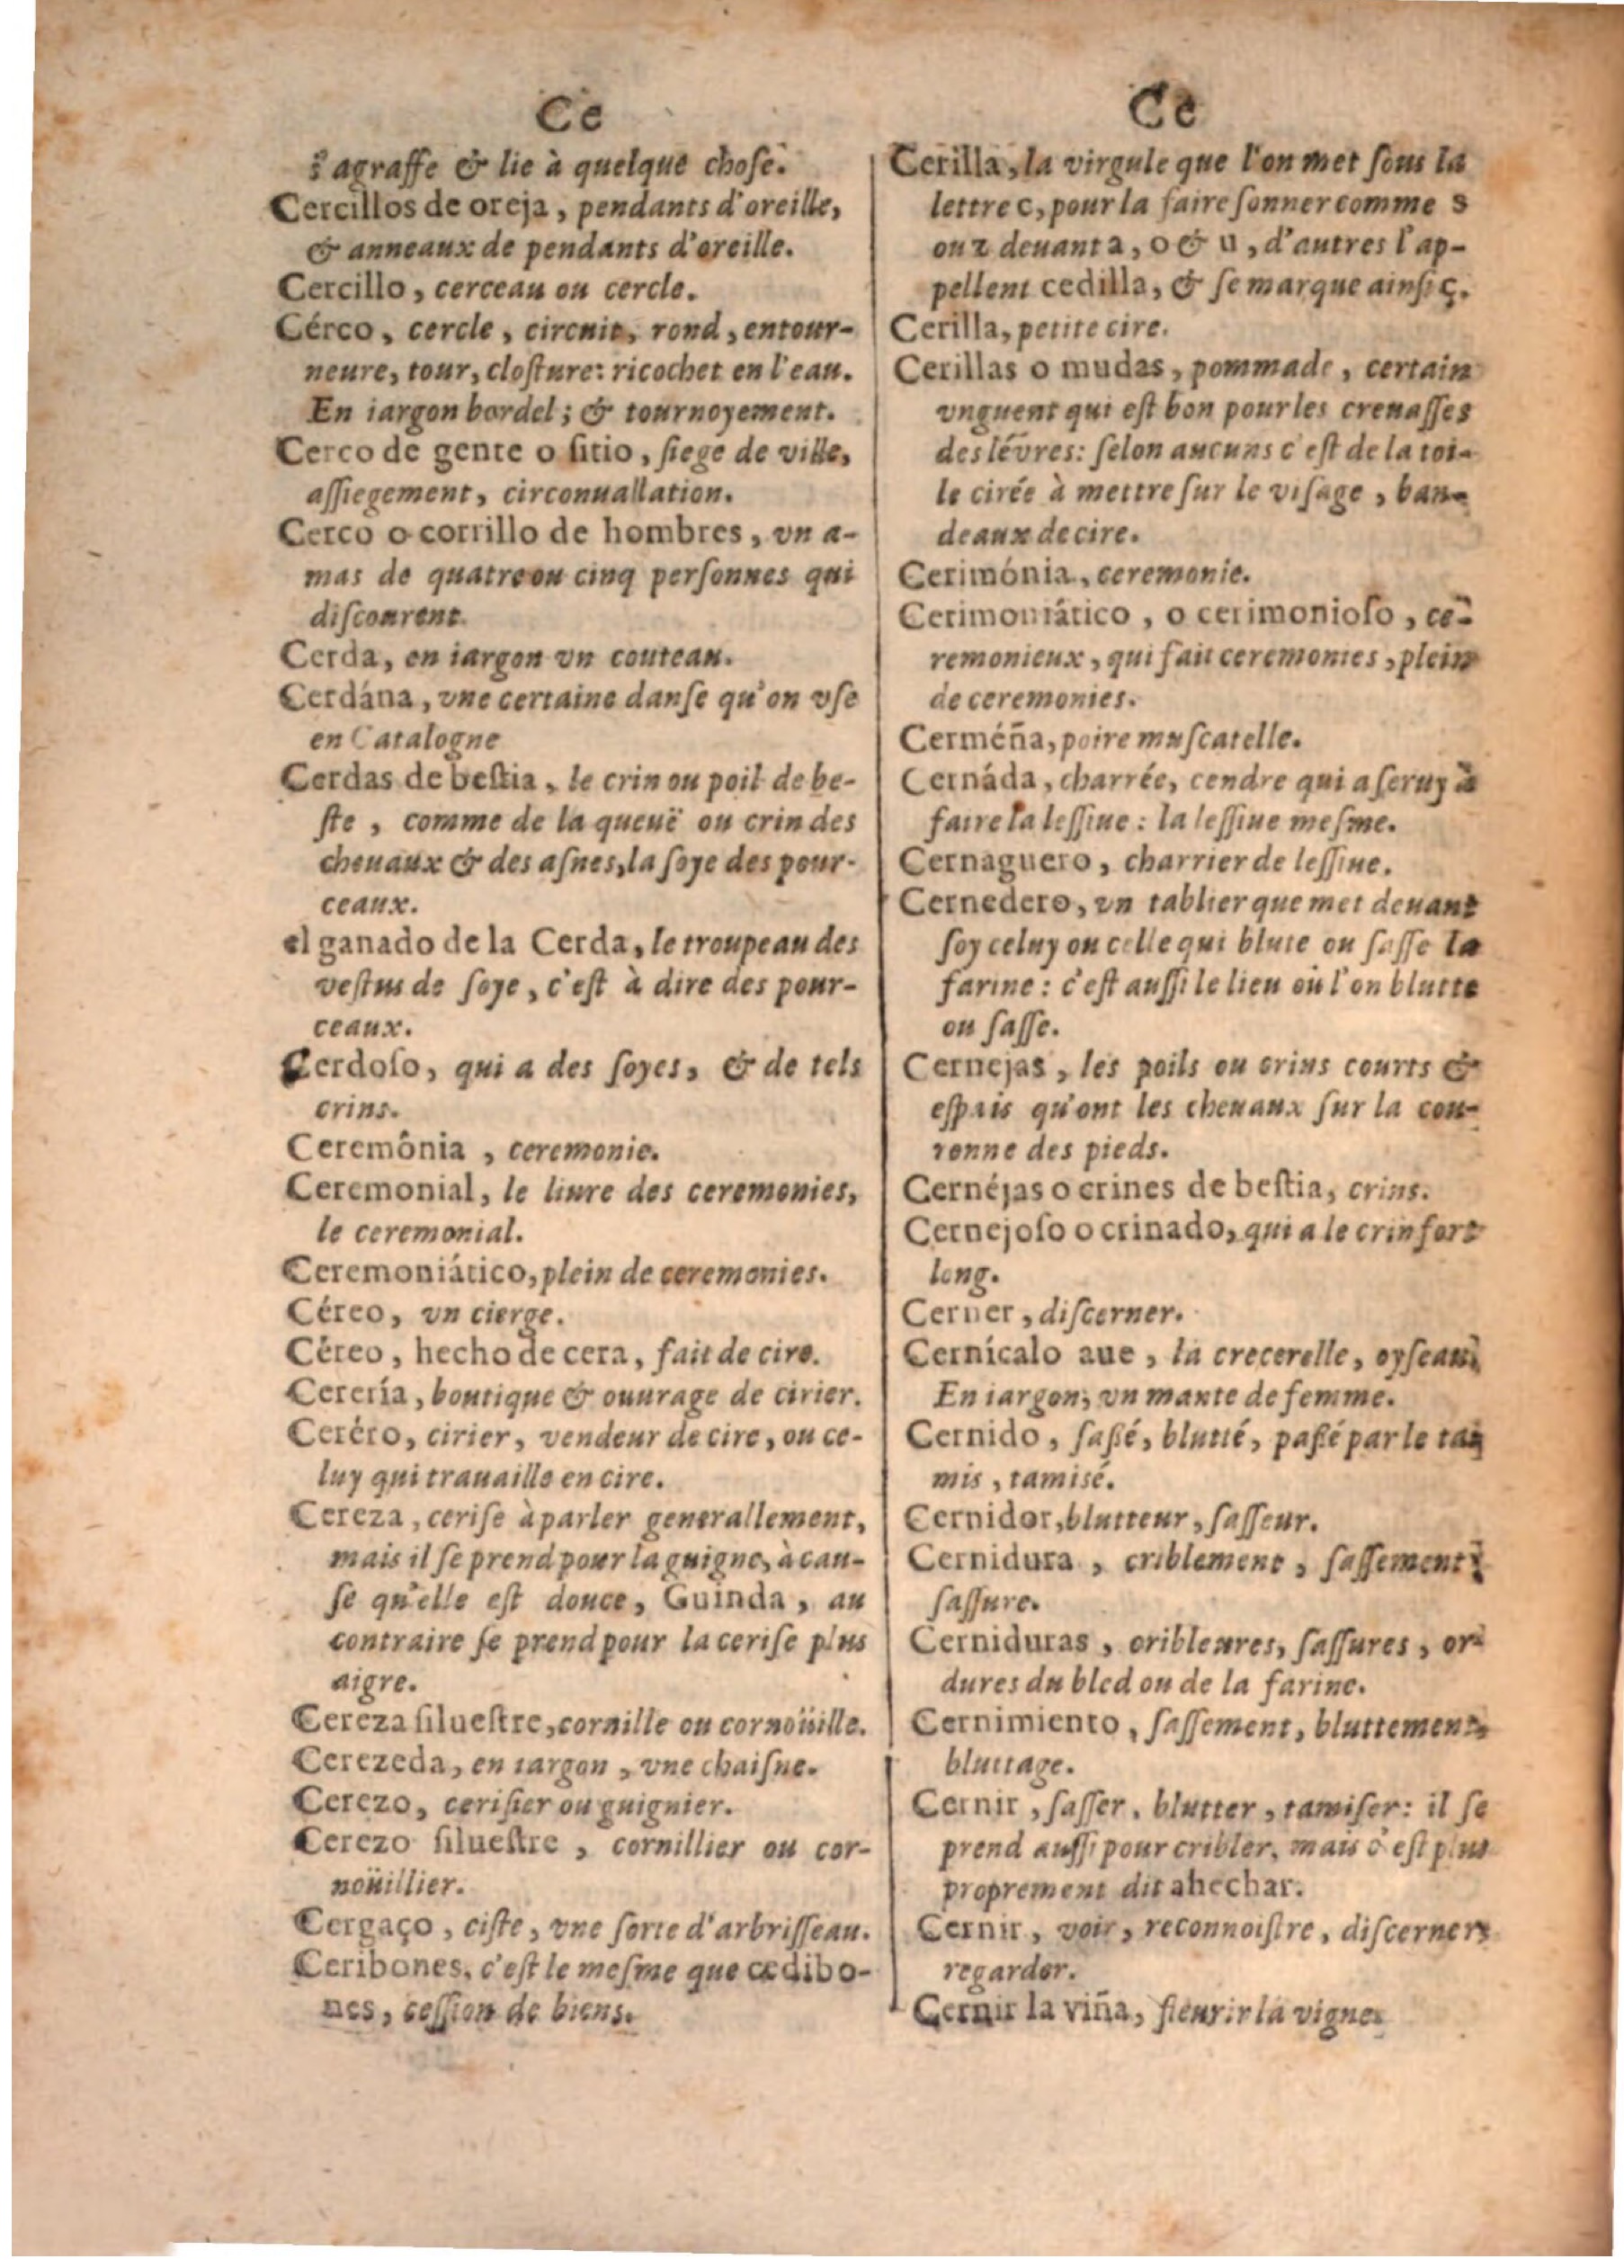 Ce
s'agraffe & lie à quelque chose.
Cercillos de oreja, pendants d'oreille,
& anneaux de pendants d'oreille.
Cercillo, cerceau ou cercle.
Cérco, cercle, circuit, rond, entour-
neure, tour, closture: ricochet en l'eau.
En iargon bordel; & tournoyement.
Cerco de gente o sitio, siege de ville,
assiegement, circonuallation.
Cerco o corrillo de hombres, vn a-
mas de quatre ou cinq personnes qui
discourent.
Cerda, en iargon vn couteau.
Cerdána, vne certaine danse qu'on vse
en Catalogne
Cerdas de bestia, le crin ou poil de be-
ste, comme de la queuë ou crin des
cheuaux & des asnes, la soye des pour-
ceaux.
el ganado de la Cerda, le troupeau des
vestus de soye, c'est à dire des pour-
ceaux.
Cerdoso, qui a des soyes, & de tels
crins.
Ceremônia, ceremonie.
Ceremonial, le liure des ceremonies,
le ceremonial.
Ceremoniático, plein de ceremonies.
Céreo, vn cierge.
Céreo, hecho de cera, fait de cire.
Cerería, boutique & ouurage de cirier.
Ceréro, cirier, vendeur de cire, ou ce-
luy qui trauaille en cire.
Cereza, cerise à parler generallement,
mais il se prend pour la guigne, à cau-
se qu'elle est douce, Guinda, au
contraire se prend pour la cerise plus
aigre.
Cereza siluestre, cornille ou cornoüille.
Cerezeda, en iargon, vne chaisne.
Cerezo, cerisier ou guignier.
Cerezo siluestre, cornillier ou cor-
noüillier.
Cergaço, ciste, vne sorte d'arbrisseau.
Ceribones, c'est le mesme que cedibo-
nes, cession de biens.
Ce
Cerilla, la virgule que l'on met sous la
lettre c, pour la faire sonner comme s
ou z deuant a, o & u, d'autres l'ap-
pellent cedilla, & se marque ainsi ç.
Cerilla, petite cire.
Cerillas o mudas, pommade, certain
vnguent qui est bon pour les creuasses
des lévres: selon aucuns c'est de la toi-
le cirée à mettre sur le visage, ban-
deaux de cire.
Cerimónia, ceremonie.
Cerimoniático, o cerimonioso, ce-
remonieux, qui fait ceremonies, plein
de ceremonies.
Cerméña, poire muscatelle.
Cernáda, charrée, cendre qui a seruy à
faire la lessiue: la lessiue mesme.
Cernaguero, charrier de lessiue.
Cernedero, vn tablier que met deuant
soy celuy ou celle qui blute ou sasse la
farine: c'est aussi le lieu où l'on blutte
ou sasse.
Cernejas, les poils ou crins courts &
espais qu'ont les cheuaux sur la cou-
ronne des pieds.
Cernéjas o crines de bestia, crins.
Cernejoso o crinado, qui a le crin fort
long.
Cerner, discerner.
Cernícalo aue, la crecerelle, oyseau.
En iargon, vn mante de femme.
Cernido, sassé, blutté, passé par le ta-
mis, tamisé.
Cernidor, blutteur, sasseur.
Cernidura, criblement, sassement,
sassure.
Cerniduras, cribleures, sassures, or-
dures du bled ou de la farine.
Cernimiento, sassement, bluttement,
bluttage.
Cernir, sasser, blutter, tamiser: il se
prend aussi pour cribler, mais c'est plus
proprement dit ahechar.
Cernir, voir, reconnoistre, discerner,
regarder.
Cernir la viña, fleurir la vigne.